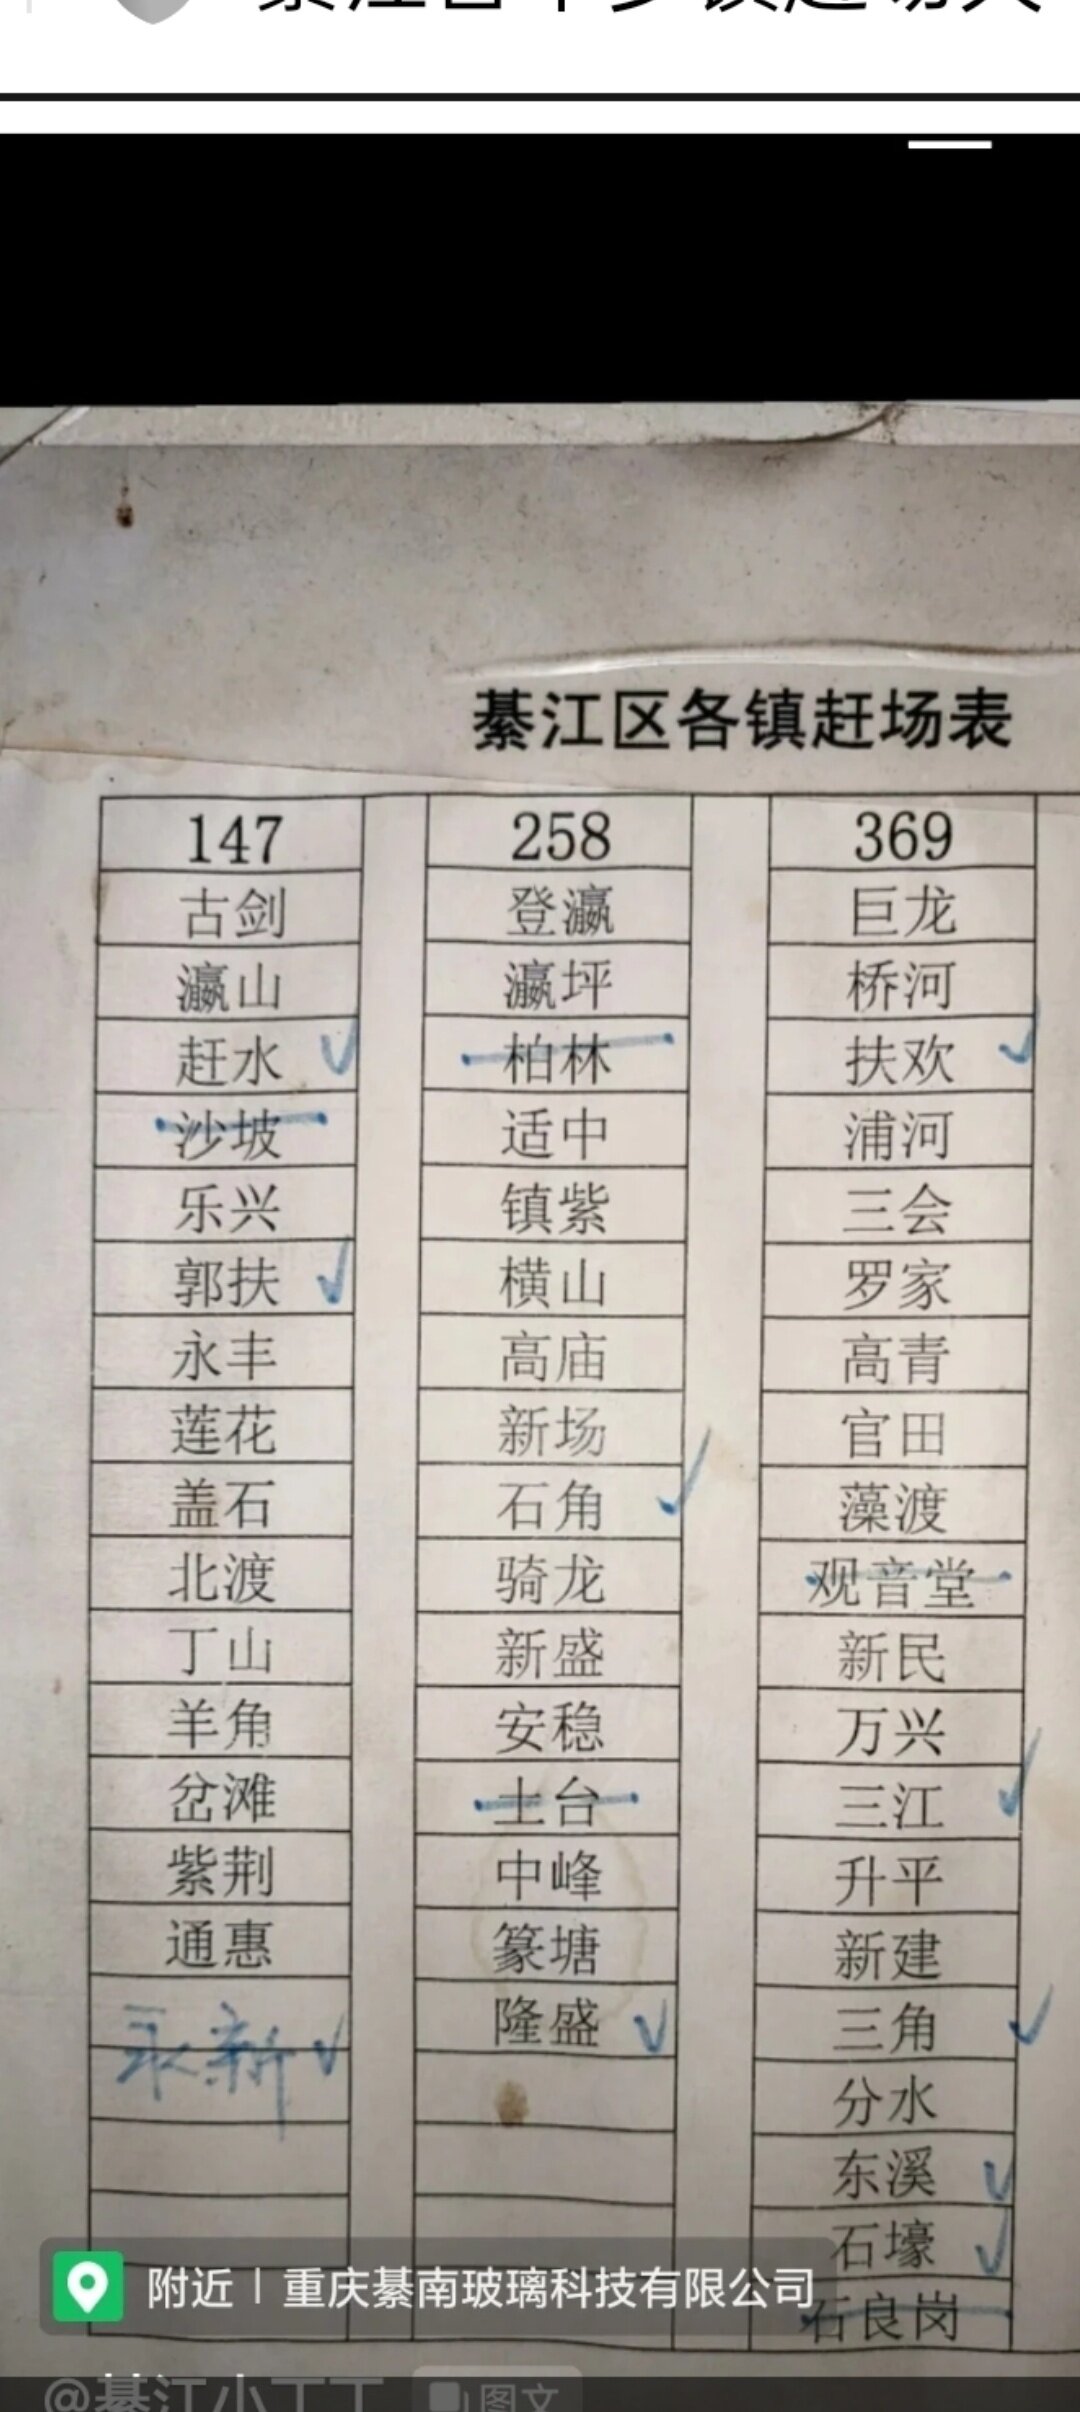 綦江区各镇赶场表
147 258 369
古剑 登瀛 巨龙
瀛山 瀛坪 桥河
赶水 柏林 扶欢
沙坡 适中 浦河
乐兴 镇紫 三会
郭扶 横山 罗家
永丰 高庙 高青
莲花 新场 官田
盖石 石角 藻渡
北渡 骑龙 观音堂
丁山 新盛 新民
羊角 安稳 万兴
岔滩 土台 三江
紫荆 中峰 升平
通惠 篆塘 新建
永新 隆盛 三角
分水
东溪
石壕
石良岗
附近 | 重庆綦南玻璃科技有限公司
@綦江小丁丁 图文